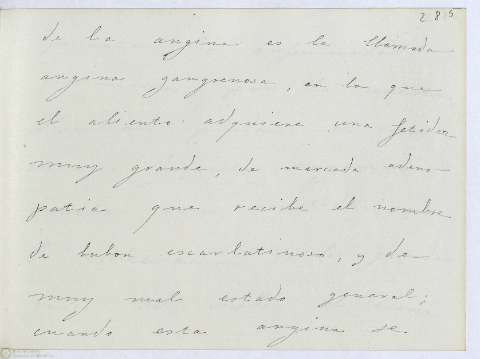 285
de la angina es la llamada
angina gangrenosa, en la que
el aliento adquiere una fetidez
muy grande, de marcada adeno-
patia que recibe el nombre
de bubon escarlatinoso, y de
muy mal estado general;
cuando esta angina se